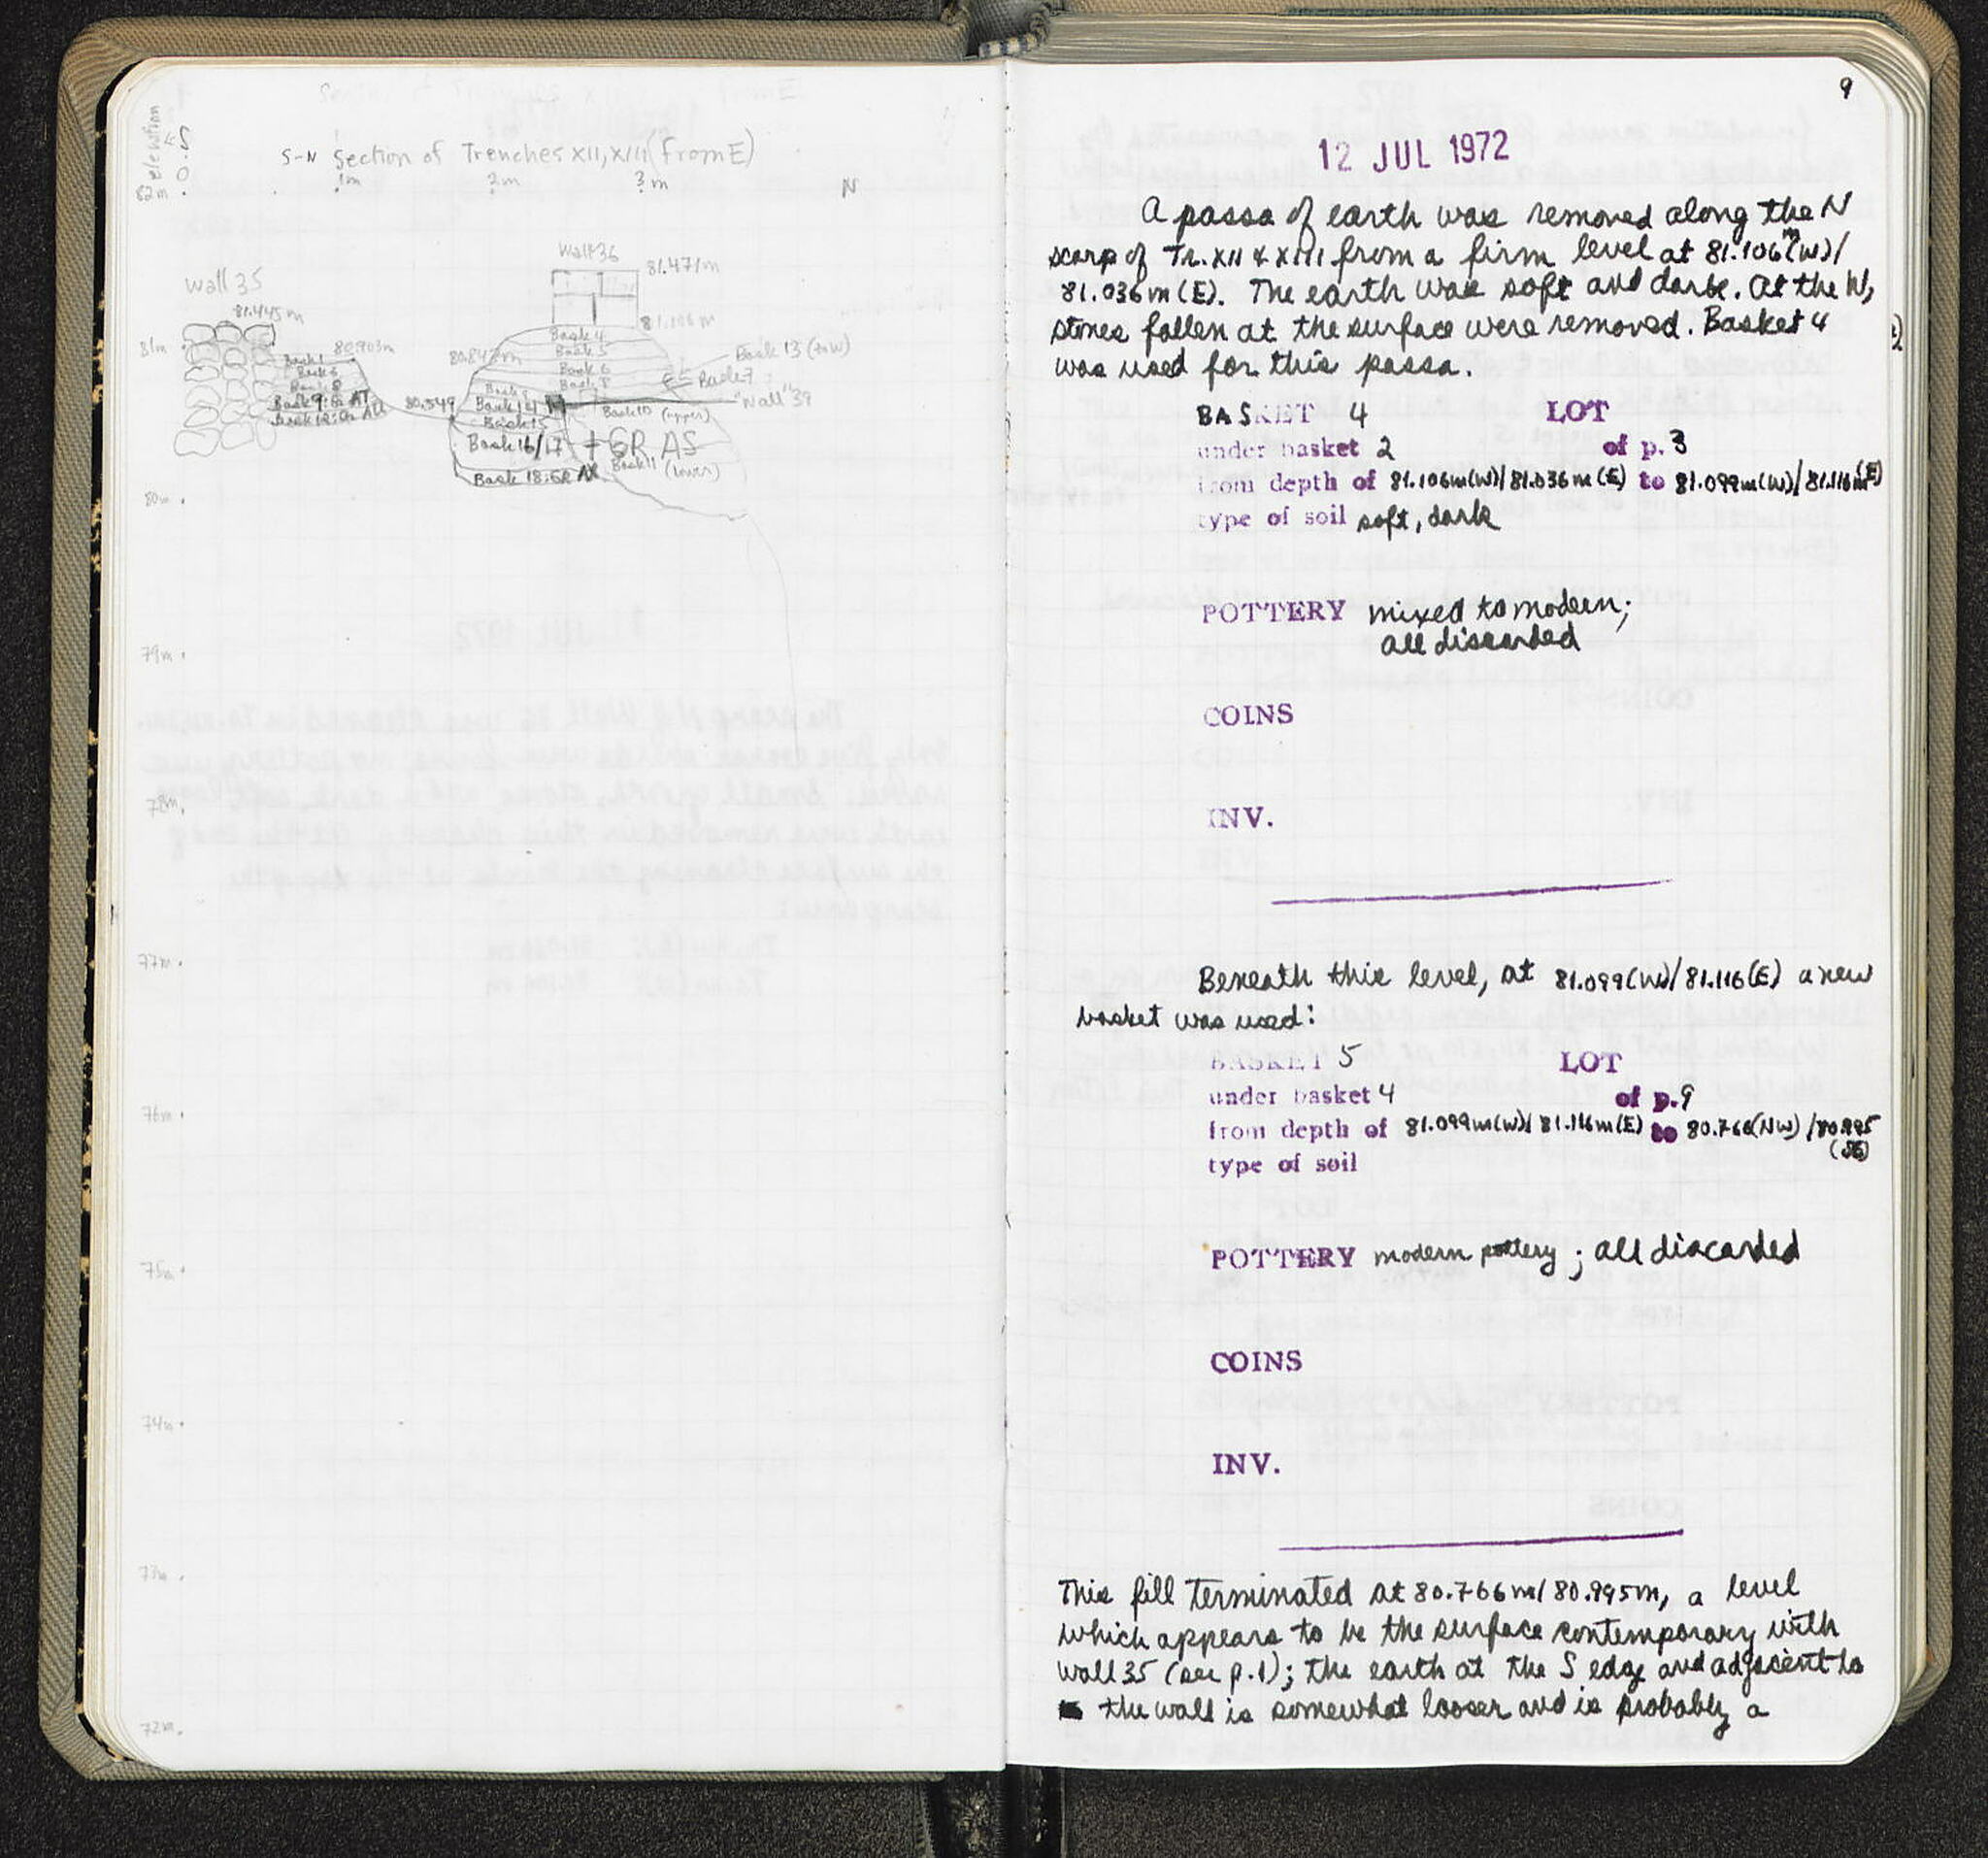 elevation
S
0
S-N Section of Trenches XII, XIII (from E)
1m 2m 3m N
82m
Wall 36
81.471m
Wall 35
81.445m
81.106m
Bask 4
Bask 5
Bask 6
81m
80.903m
Bask 13 (to W)
Bask 7
"Wall" 39
80.549
Bask 14
Bask 10 (upper)
Bask 15
Bask 16/17
+ GR AS
Bask 11 (lower)
Bask 18: GR AX
80m
79m
78m
77m
76m
75m
74m
73m
72m
9
12 JUL 1972
A passa of earth was removed along the N
scarp of Tr. XII & XIII from a firm level at 81.106m(W)/
81.036m(E). The earth was soft and dark. At the W,
stones fallen at the surface were removed. Basket 4
was used for this passa.
BASKET 4 LOT
under basket 2 of p. 3
from depth of 81.106m(W)/81.036m(E) to 81.099m(W)/81.116m(E)
type of soil soft, dark
POTTERY mixed to modern;
all discarded
COINS
INV.
Beneath this level, at 81.099(W)/81.116(E) a new
basket was used:
BASKET 5 LOT
under basket 4 of p. 9
from depth of 81.099m(W)/81.116m(E) to 80.766(NW)/80.995
(SE)
type of soil
POTTERY modern pottery; all discarded
COINS
INV.
This fill terminated at 80.766m/80.995m, a level
which appears to be the surface contemporary with
wall 35 (see p.1); the earth at the S edge and adjacent to
the wall is somewhat looser and is probably a